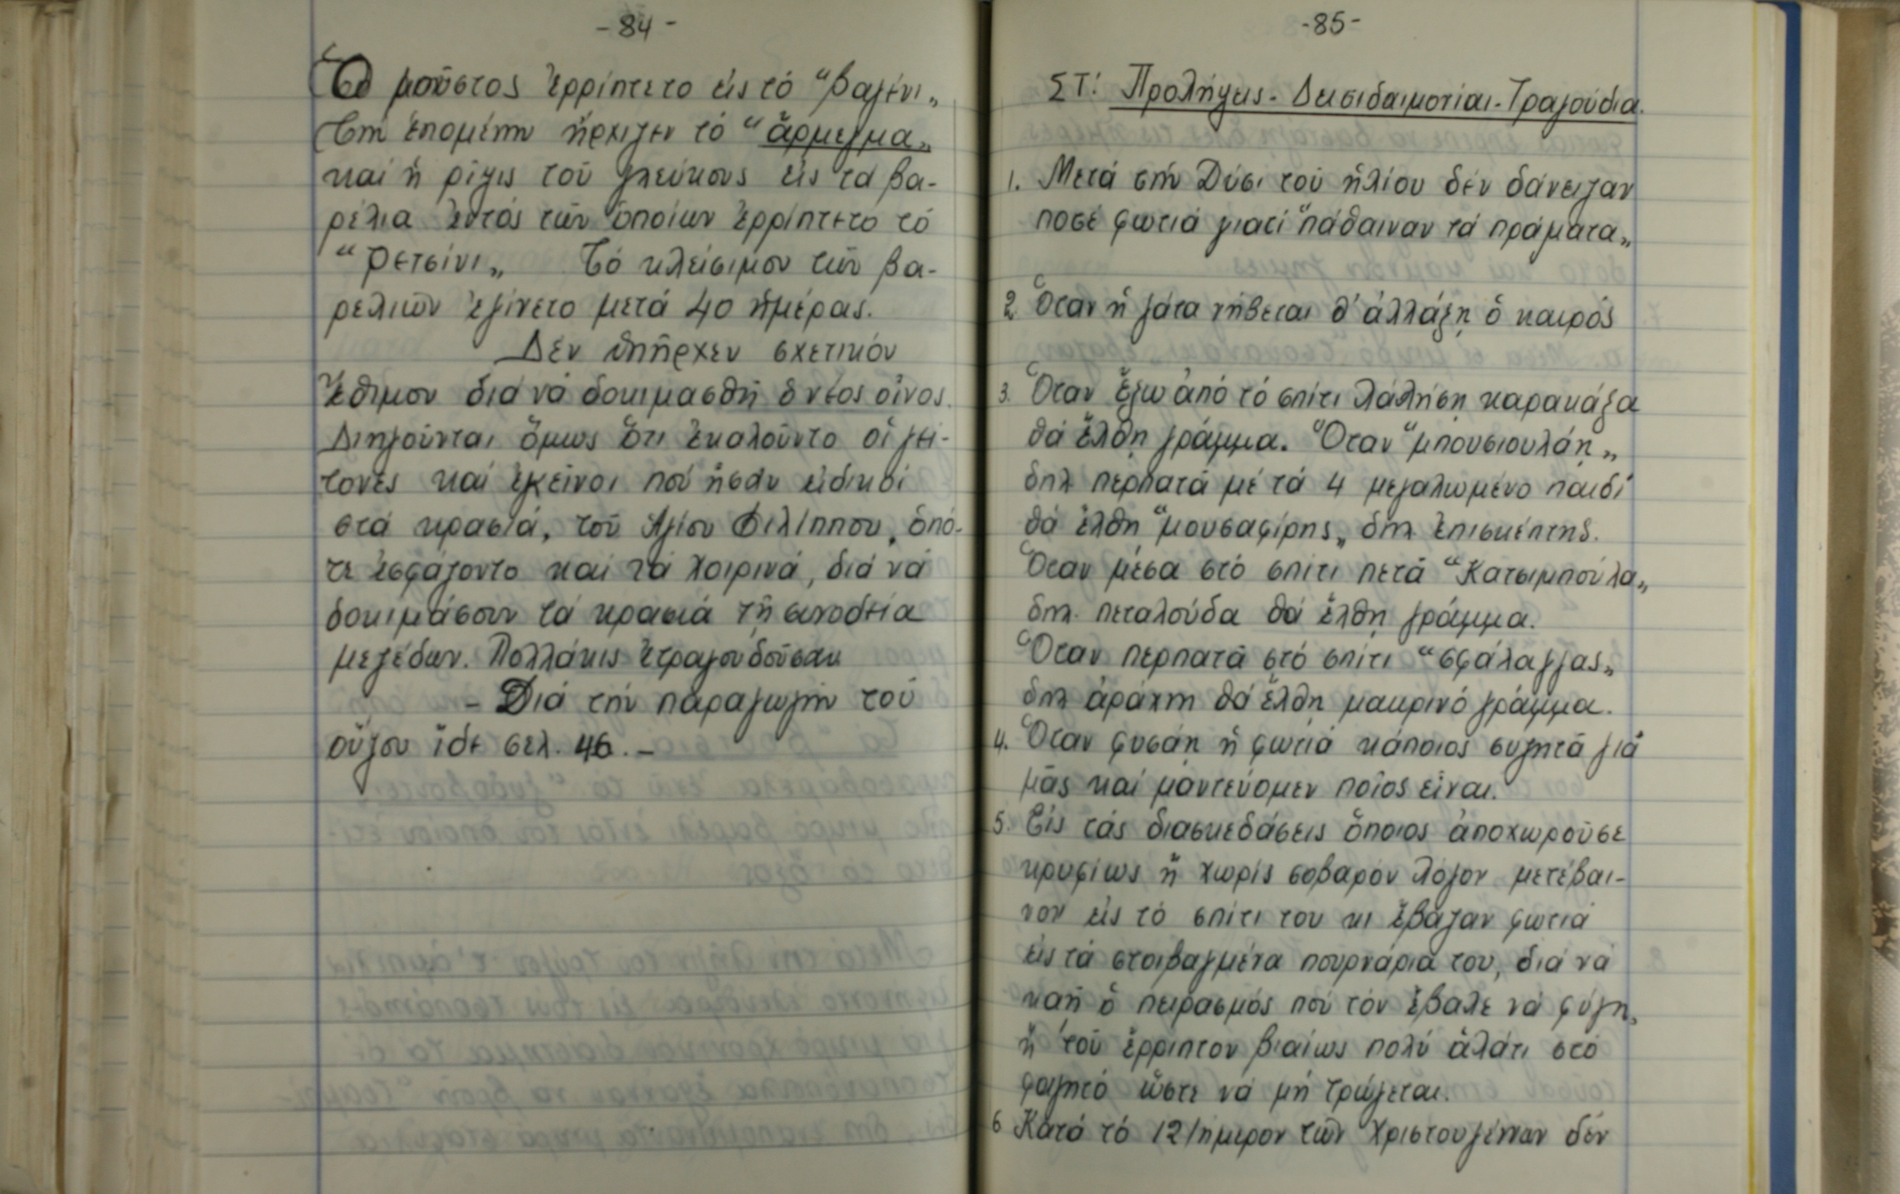 -84-
Ὁ μοῦστος ἐρρίπτετο εἰς τό "βαγένι„
Τήν ἑπομένην ἤρχιζεν τό "ἄρμεγμα„
καί ἡ ρίψις τοῦ γλεύκους εἰς τά βα-
ρέλια ἐντός τῶν ὁποίων ἐρρίπτετο τό
"ρετσίνι„ Τό κλείσιμον τῶν βα-
ρελιῶν ἐγίνετο μετά 40 ἡμέρας.
Δέν ὑπῆρχεν σχετικόν
ἔθιμον διά νά δοκιμασθῆ ὁ νέος οἶνος.
Διηγοῦνται ὅμως ὅτι ἐκαλοῦντο οἱ γεί-
τονες καί ἐκεῖνοι πού ἦσαν εἰδικοί
στά κρασιά, τοῦ Ἁγίου Φιλίππου, ὁπό-
τε ἐσφάζοντο καί τά χοιρινά, διά νά
δοκιμάσουν τά κρασιά τῆ συνοδεία
μεζέδων. Πολλάκις ἐτραγουδοῦσαν
- Διά τήν παραγωγήν τοῦ
οὔζου ἴδε σελ. 46.-
-85-
ΣΤ! Προλήψεις - Δεισιδαιμονίαι - Τραγούδια.
1. Μετά στήν Δύσι τοῦ ἡλίου δέν δάνειζαν
ποσέ φωτιά γιατί "πάθαιναν τά πράματα„
2. Ὅταν ἡ γάτα νήβεται θ' ἀλλάξη ὁ καιρός
3. Ὅταν ἔξω ἀπό τό σπίτι λαλήση καρακάξα
θά ἔλθη γράμμα. Ὅταν "μπουσιουλάη„
δηλ περπατᾶ μέ τά 4 μεγαλωμένο παιδί
θά ἔλθη "μουσαφίρης„ δηλ ἐπισκέπτης.
Ὅταν μέσα στό σπίτι πετᾶ "Κατσιμπούλα„
δηλ. πεταλούδα θά ἔλθη γράμμα.
Ὅταν περπατᾶ στό σπίτι "σφάλαγγας„
δηλ ἀράχνη θά ἔλθη μακρινό γράμμα.
4. Ὅταν φυσάη ἡ φωτιά κάποιος συζητᾶ γιά
μᾶς καί μαντεύομεν ποῖος εἶναι.
5. Εἰς τάς διασκεδάσεις ὅποιος ἀποχωροῦσε
κρυφίως ἤ χωρίς σοβαρόν λόγον μετέβαι-
νον εἰς τό σπίτι του κι ἔβαζαν φωτιά
εἰς τά στοιβαγμένα πουρνάρια του, διά νά
καῆ ὁ πειρασμός πού τόν ἔβαλε νά φύγη,
ἤ τοῦ ἔρριπτον βιαίως πολύ ἀλάτι στό
φαγητό ὥστε νά μή τρώγεται.
6 Κατά τό 12/ήμερον τῶν Χριστουγέννων δέν